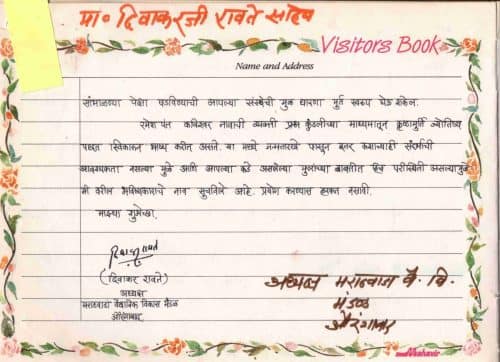 मा० दिवाकरजी रावते साहेब
Visitors Book
Name and Address
सांभाळण्या पेक्षा घडविण्याची आपल्या संस्थेची मुळ धारणा मुर्त स्वरुप घेऊ शकेल.
रमेश पंत कविश्वर नावाची व्यक्ती प्रश्न कुंडलीच्या माध्यमातून कृष्णमुर्ति ज्योतिष्य
पध्दत स्विकारुन भाष्य करीत असते. या मध्ये जन्मतारखे पासून इतर कशाचाही संदर्भाची
आवश्यकता नसल्या मुळे आणि आपल्या कडे असलेल्या मुलांच्या बाबतीत हिच परिस्थिती असल्यामुळे
मी वरील भविष्यकाराचे नाव सुचविले आहे. प्रवेश करण्यास हरकत नसावी.
माझ्या शुभेच्छा.
(दिवाकर रावते)
अध्यक्ष
मराठवाडा वैधानिक विकास मंडळ
औरंगाबाद
अध्यक्ष मराठवाडा वै. वि.
मंडळ
औरंगाबाद